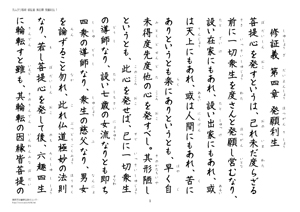 修証義 第四章 発願利生
菩提心を発すというは、己れ未だ度らざる
前に一切衆生を度さんと発願し営むなり、
設い在家にもあれ、設い出家にもあれ、或い
は天上にもあれ、或は人間にもあれ、苦に
ありというとも楽にありというとも、早く自
未得度先度他の心を発すべし。其形陋し
というとも、此心を発せば、已に一切衆生
の導師なり、設い七歳の女流なりとも即ち
四衆の導師なり、衆生の慈父なり、男女
を論ずること勿れ、此れ仏道極妙の法則
なり、若し菩提心を発して後、六趣四生
に輪転すと雖も、其輪転の因縁皆菩提の
1